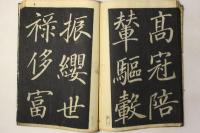 高冠陪
輦驅轂
振纓世
祿侈富